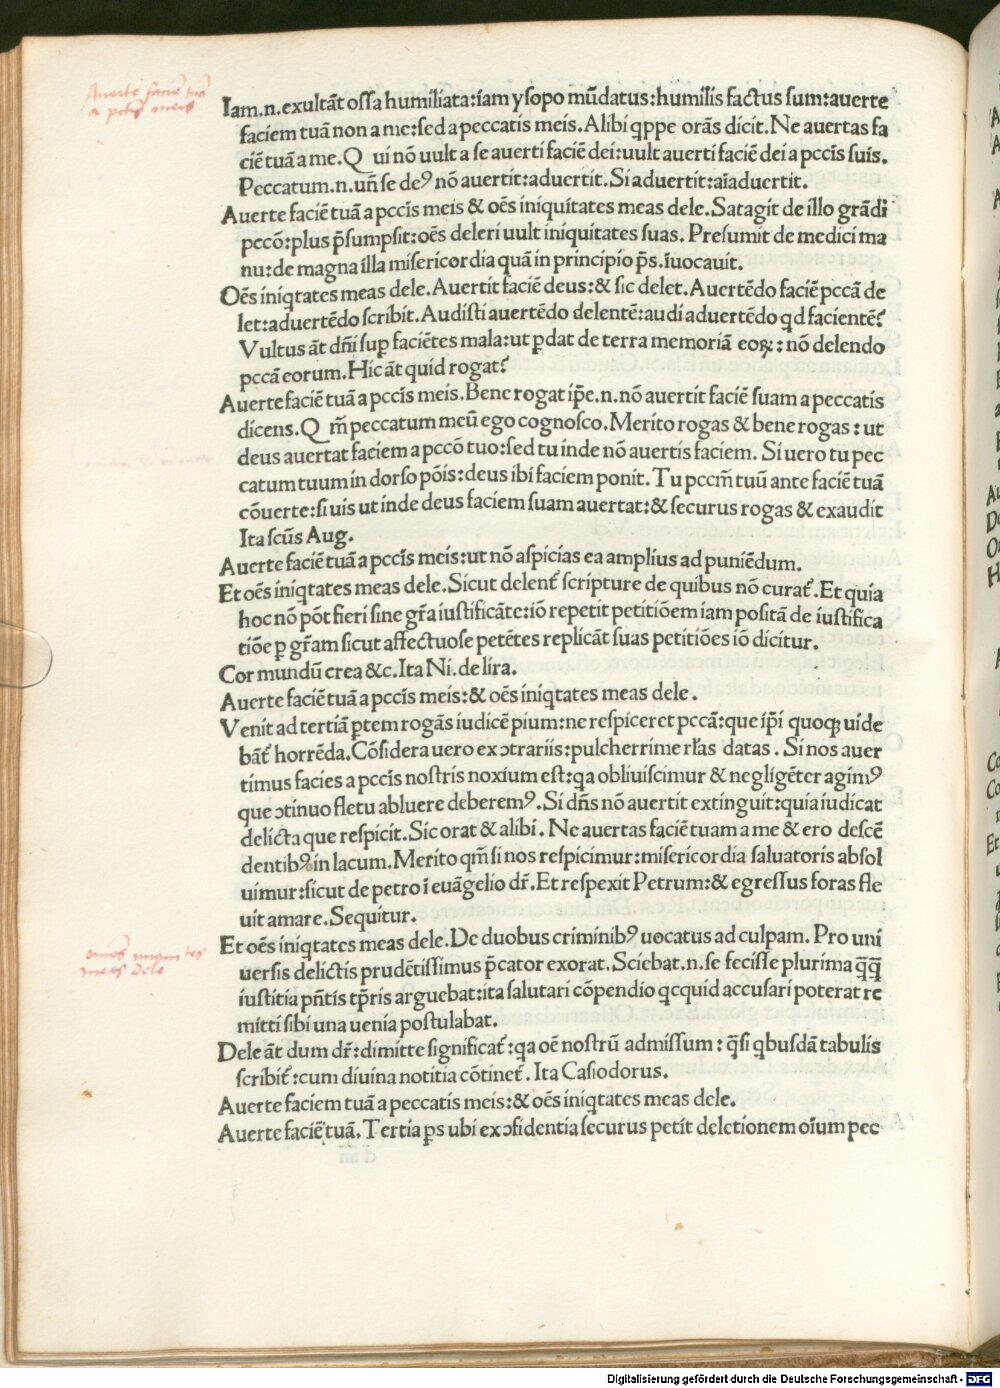 Auerte faciē tuā
a pctis meis
Iam.n.exultāt ossa humiliata:iam ysopo mūdatus:humilis factus sum:auerte
faciem tuā non a me:sed a peccatis meis.Alibi qppe orās dicit.Ne auertas fa
ciē tuā a me.Q ui nō uult a se auerti faciē dei:uult auerti faciē dei a pccis suis.
Peccatum.n.uñ se deꝰ nō auertit:aduertit.Si aduertit:aīaduertit.
Auerte faciē tuā a pccis meis & oēs iniquitates meas dele.Satagit de illo grādi
pccō:plus p̄sumpsit:oēs deleri uult iniquitates suas.Presumit de medici ma
nu:de magna illa misericordia quā in principio p̄s.īuocauit.
Oēs iniqtates meas dele.Auertit faciē deus:& sic delet.Auertēdo faciē pccā de
let:aduertēdo scribit.Audisti auertēdo delentē:audi aduertēdo qd facientē?
Vultus āt dñi sup faciētes mala:ut pdat de terra memoriā eoꝝ:nō delendo
pccā eorum.Hic āt quid rogat?
Auerte faciē tuā a pccis meis.Bene rogat ip̄e.n.nō auertit faciē suam a peccatis
dicens.Q m̄ peccatum meū ego cognosco.Merito rogas & bene rogas:ut
deus auertat faciem a pccō tuo:sed tu inde nō auertis faciem.Si uero tu pec
catum tuum in dorso pōis:deus ibi faciem ponit.Tu pccm̄ tuū ante faciē tuā
cōuerte:si uis ut inde deus faciem suam auertat:& securus rogas & exaudit
Ita scūs Aug.
Auerte faciē tuā a pccis meis:ut nō aspicias ea amplius ad puniēdum.
Et oēs iniqtates meas dele.Sicut delent᷑ scripture de quibus nō curat᷑.Et quia
hoc nō pōt fieri sine gr̄a iustificāte:iō repetit petitiōem iam positā de iustifica
tiōe p gr̄am sicut affectuose petētes replicāt suas petitiōes iō dicitur.
Cor mundū crea &c.Ita Ni.de lira.
Auerte faciē tuā a pccis meis:& oēs iniqtates meas dele.
Venit ad tertiā ptem rogās iudicē pium:ne respiceret pccā:que ip̄i quoqꝫ uide
bāt᷑ horrēda.Cōsidera uero exↄtrariis:pulcherrime rl̄as datas.Si nos auer
timus facies a pccis nostris noxium est:qa obliuiscimur & negligēter agimꝰ
que ↄtinuo fletu abluere deberemꝰ.Si dñs nō auertit extinguit:quia iudicat
delicta que respicit.Sic orat & alibi.Ne auertas faciē tuam a me & ero descē
dentibꝰ in lacum.Merito qm̄ si nos respicimur:misericordia saluatoris absol
uimur:sicut de petro ī euāgelio dr̄.Et respexit Petrum:& egressus foras fle
uit amare.Sequitur.
omēs iniquitates
meas dele
Et oēs iniqtates meas dele.De duobus criminibꝰ uocatus ad culpam.Pro uni
uersis delictis prudētissimus p̄cator exorat.Sciebat.n.se fecisse plurima q̄q̄
iustitia pñtis tp̄ris arguebat:ita salutari cōpendio qcquid accusari poterat re
mitti sibi una uenia postulabat.
Dele āt dum dr̄:dimitte significat᷑:qa oē nostrū admissum:q̄si qbusdā tabulis
scribit᷑:cum diuina notitia cōtinet᷑.Ita Casiodorus.
Auerte faciem tuā a peccatis meis:& oēs iniqtates meas dele.
Auerte faciē tuā.Tertia ps ubi exↄfidentia securus petit deletionem oīum pec
Digitalisierung gefördert durch die Deutsche Forschungsgemeinschaft - DFG